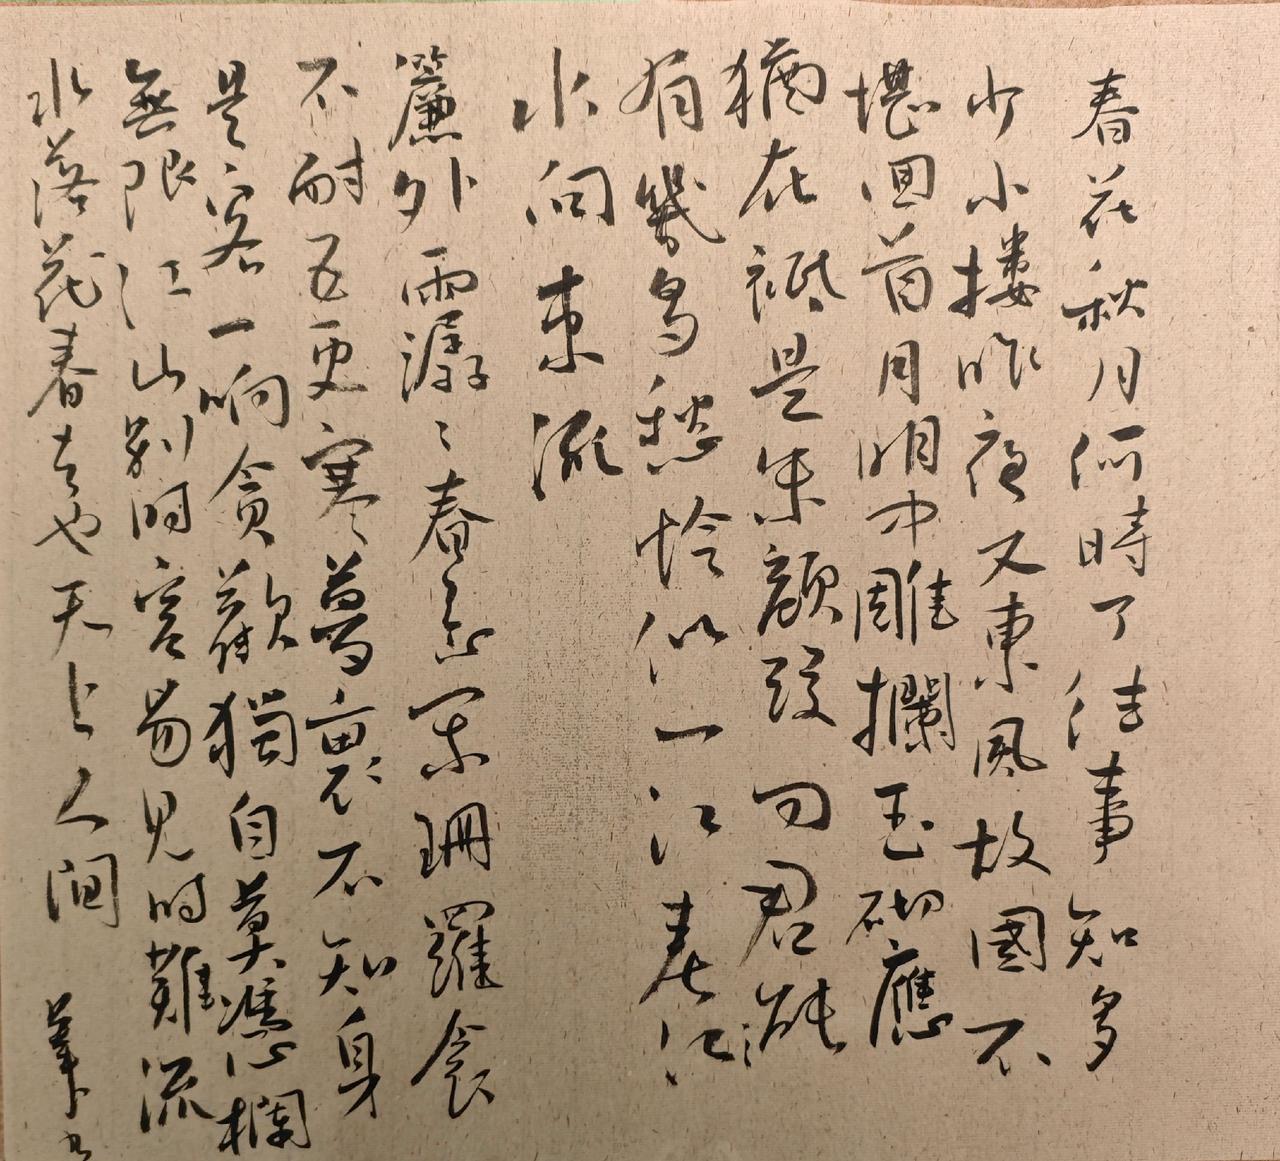 春花秋月何時了往事知多
少小搂昨夜又東風故國不
堪回首月明中雕攔玉砌應
猶在祇是朱顔改问君能
有幾多愁恰似一江春江
水向東流
簾外雨潺〻春意闌珊羅衾
不耐五更寒夢裏不知身
是客一晌貪歡獨自莫憑欄
無限江山别时容易見时難流
水落花春去也天上人间